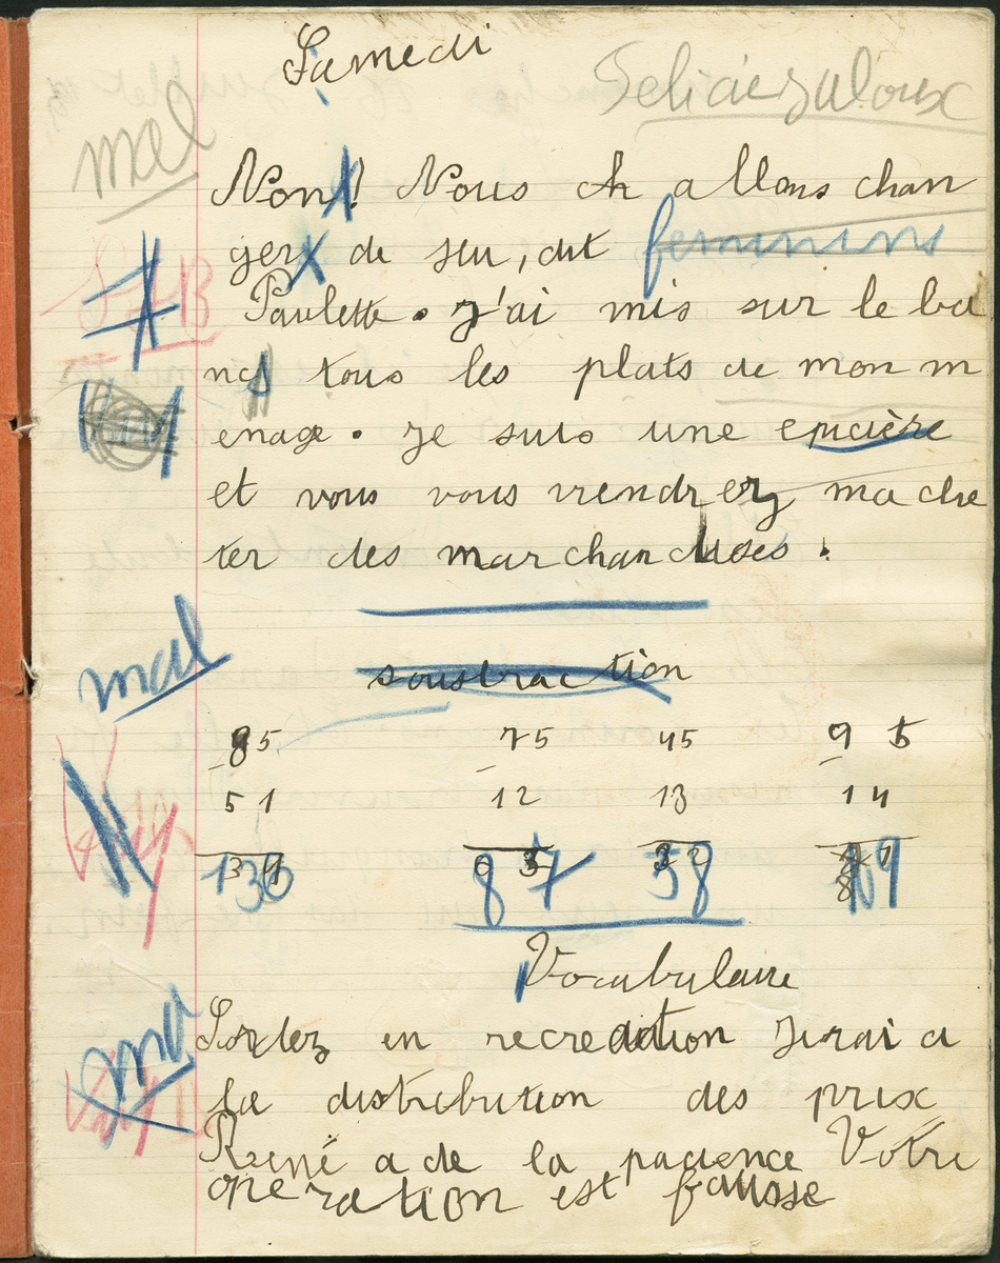 Samedi
Felicie Jaloux
mal
Non! Nous ch allons chan
ger de jeu, dit feminins
Paulette. J'ai mis sur le ba
nc tous les plats de mon m
enage. Je suis une epicière
et vous vous viendrez m a che
ter des marchandises.
mal
soustraction
85 75 45 9 5
- - -
51 12 13 14
136 87 58 109
Vocabulaire
Sortez en recreation J'irai a
la distribution des prix
René a de la pacience Votre
operation est fausse